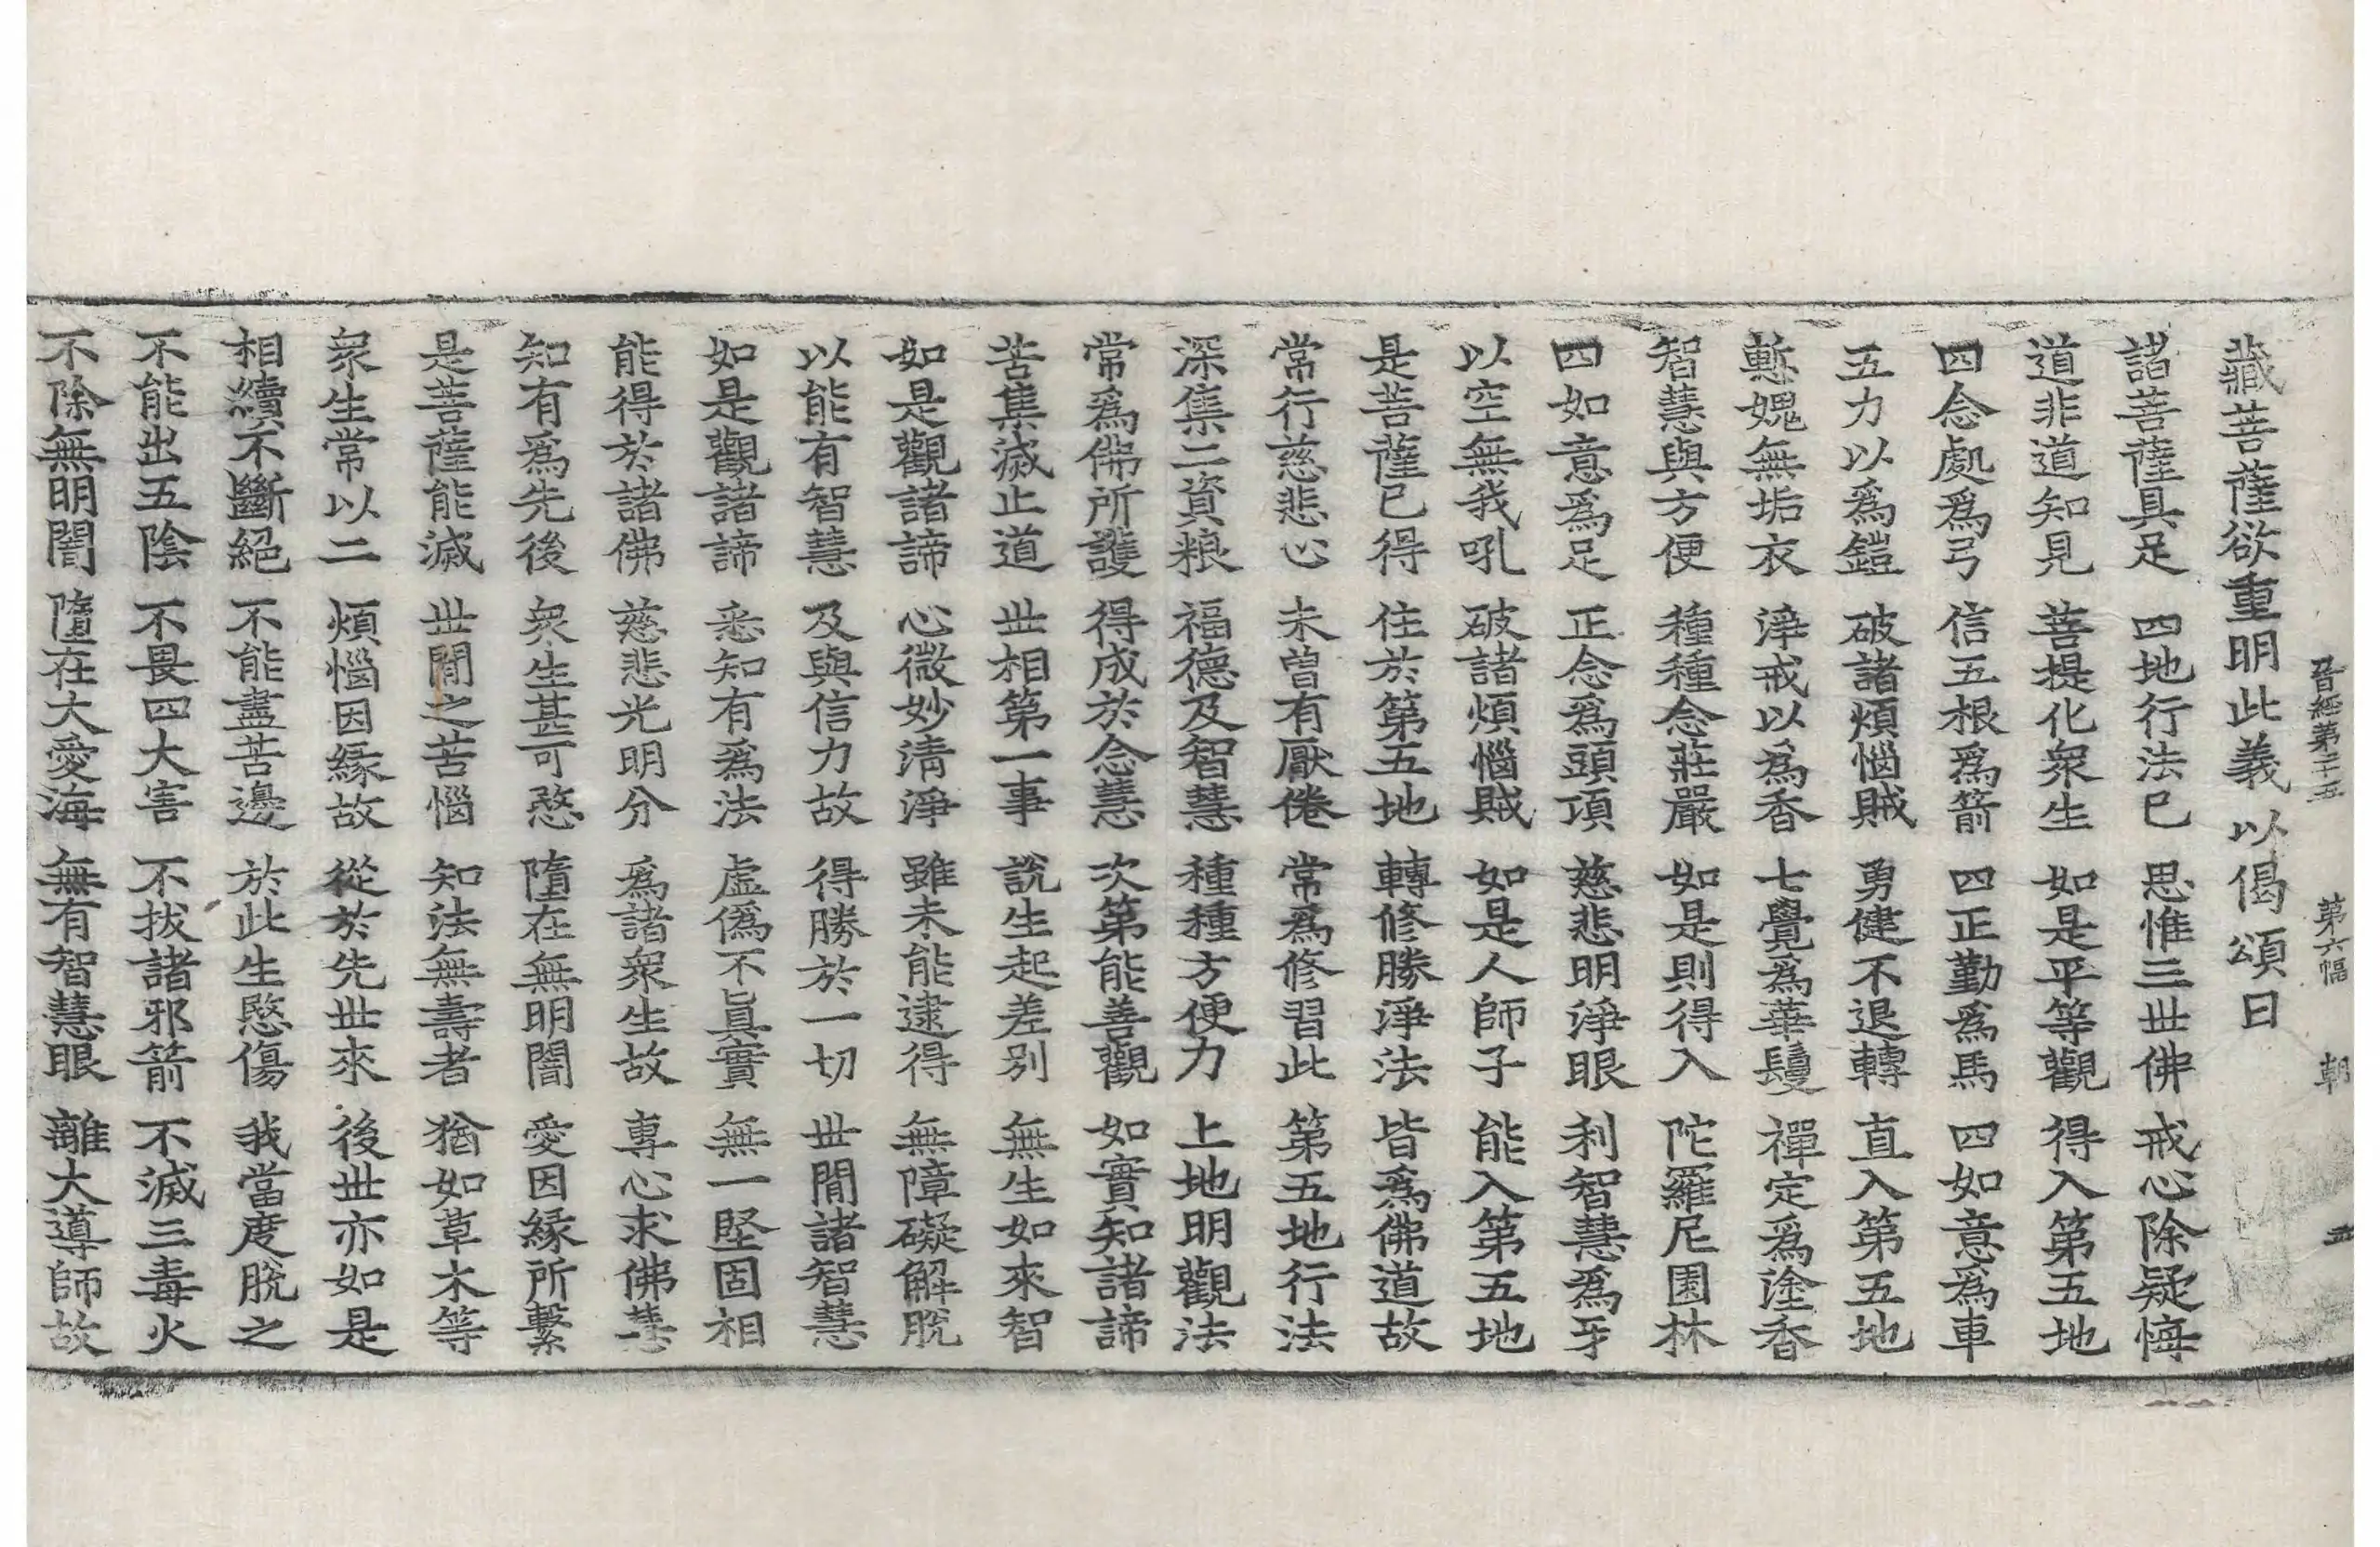 晉經第二十五 第六幅 朝
藏菩薩欲重明此義以偈頌曰
諸菩薩具足 四地行法已 思惟三世佛 戒心除疑悔
道非道知見 菩提化衆生 如是平等觀 得入第五地
四念處爲弓 信五根爲箭 四正勤爲馬 四如意爲車
五力以爲鎧 破諸煩惱賊 勇健不退轉 直入第五地
慙媿無垢衣 淨戒以爲香 七覺爲華鬘 禪定爲塗香
智慧與方便 種種念莊嚴 如是則得入 陀羅尼園林
四如意爲足 正念爲頭項 慈悲明淨眼 利智慧爲牙
以空無我吼 破諸煩惱賊 如是人師子 能入第五地
是菩薩已得 住於第五地 轉修勝淨法 皆爲佛道故
常行慈悲心 未曾有厭倦 常爲修習此 第五地行法
深集二資粮 福德及智慧 種種方便力 上地明觀法
常爲佛所護 得成於念慧 次第能善觀 如實知諸諦
苦集滅止道 世相第一事 說生起差別 無生如來智
如是觀諸諦 心微妙清淨 雖未能逮得 無障礙解脫
以能有智慧 及與信力故 得勝於一切 世間諸智慧
如是觀諸諦 悉知有爲法 虛僞不真實 無一堅固相
能得於諸佛 慈悲光明分 爲諸衆生故 專心求佛慧
知有爲先後 衆生甚可愍 墮在無明闇 愛因緣所繫
是菩薩能滅 世間之苦惱 知法無壽者 猶如草木等
衆生常以二 煩惱因緣故 從於先世來 後世亦如是
相續不斷絕 不能盡苦邊 於此生愍傷 我當度脫之
不能出五陰 不畏四大害 不拔諸邪箭 不滅三毒火
不除無明闇 墮在大愛海 無有智慧眼 離大導師故